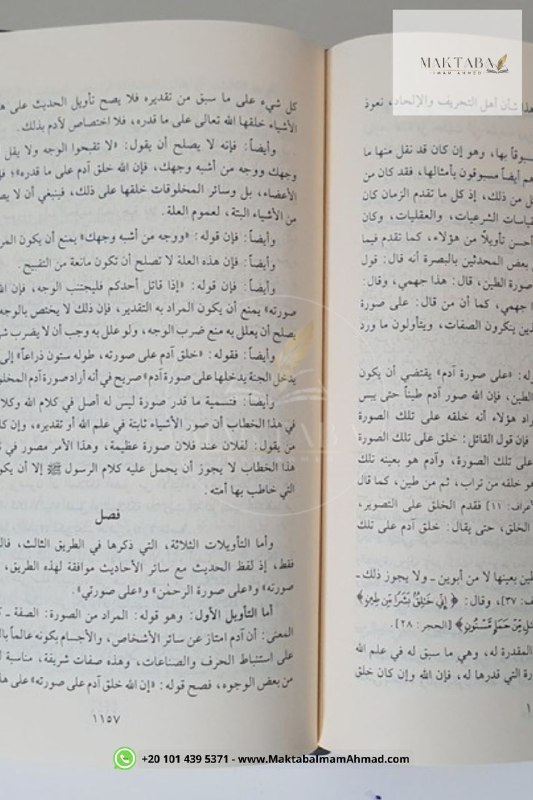 MAKTABA
IMAM AHMED
هذا شأن أهل التحريف والإلحاد، نعوذ
سبوقاً بها، وهو إن كان قد نقل منها ما
هم أيضاً مسبوقون بأمثالها، فقد كان من
ل من ذلك، إذ كل ما تقدم الزمان كان
قياسات الشرعيات، والعقليات، وكان
أحسن تأويلاً من هؤلاء، كما تقدم فيما
بعض المحدثين بالبصرة أنه قال: قول
صورة الطين، قال: هذا جهمي، وقال:
جهمي، كما أن من قال: على صورة
ذين ينكرون الصفات، ويتأولون ما ورد
له: «على صورة آدم» يقتضي أن يكون
الطين، فإن الله صور آدم طيناً حتى يبس
راد هؤلاء أنه خلقه على تلك الصورة
فإن قول القائل: خلق على تلك الصورة
لى تلك الصورة، وآدم هو بعينه تلك
هو خلقه من تراب، ثم من طين، كما قال
راف: ١١] فقدم الخلق على التصوير،
الخلق، حتى يقال: خلق آدم على تلك
طين بعينها لا من أبوين ـ ولا يجوز ذلك ـ
ف: ٣٧]، وقال: ﴿إِنِّي خَٰلِقٌۢ بَشَرًا مِّن طِينٍ﴾
مِّنْ حَمَإٍ مَّسْنُونٍ﴾ [الحجر: ٢٨].
المقدرة له، وهي ما سبق له في علم الله
رة التي قدرها له، فإن الله وإن كان خلق
كل شيء على ما سبق من تقديره فلا يصح تأويل الحديث على
الأشياء خلقها الله تعالى على ما قدره، فلا اختصاص لآدم بذلك.
وأيضاً: فإنه لا يصلح أن يقول: «لا تقبحوا الوجه ولا يقل
وجهك ووجه من أشبه وجهك، فإن الله خلق آدم على ما قدره»
الأعضاء، بل وسائر المخلوقات خلقها على ذلك، فينبغي أن لا
من الأشياء البتة، لعموم العلة.
وأيضاً: فإن قوله: «ووجه من أشبه وجهك» يمنع أن يكون
وأيضاً: فإن هذه العلة لا تصلح أن تكون مانعة من التقبيح.
وأيضاً: فإن قوله: «إذا قاتل أحدكم فليجتنب الوجه، فإن
صورته» يمنع أن يكون المراد به التقدير، فإن ذلك لا يختص بالوجه
يصلح أن يعلل به منع ضرب الوجه، ولو علل به وجب أن لا يضرب
وأيضاً: فقوله: «خلق آدم على صورته، طوله ستون ذراعاً» إلى
يدخل الجنة يدخلها على صورة آدم» صريح في أنه أراد صورة آدم
وأيضاً: فتسمية ما قدر صورة ليس له أصل في كلام الله
في هذا الخطاب أن صور الأشياء ثابتة في علم الله أو تقديره، وإن
من يقول: لفلان عند فلان صورة عظيمة، وهذا الأمر مصور في
هذا الخطاب لا يجوز أن يحمل عليه كلام الرسول ﷺ إلا أن
التي خاطب بها أمته.
فصل
وأما التأويلات الثلاثة، التي ذكرها في الطريق الثالث،
فقط، إذ لفظ الحديث مع سائر الأحاديث موافقة لهذه الطريق،
صورته» و«على صورة الرحمن» و«على صورتي».
أما التأويل الأول: وهو قوله: المراد من الصورة: الصفة ـ
المعنى: أن آدم امتاز عن سائر الأشخاص، والأجسام بكونه عالماً
على استنباط الحرف والصناعات، وهذه صفات شريفة، مناسبة
من بعض الوجوه، فصح قوله: «إن الله خلق آدم على صورته» على
١١٥٧
+20 101 439 5371 - www.MaktabaImamAhmad.com